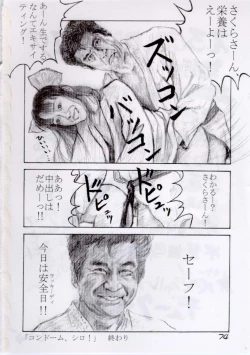 さくらさーん、
栄養は
えーよーっ！
ズッコン
バッコン
あーん生でする
なんてエキサイ
ティング！
わかるー？
さくらさーん！
ドピュッ
ドピュッ
ああっ！
中出しは
だめーっ!!
セーフ！
今日は安全日!!
「コンドーム、シロ！」　終わり